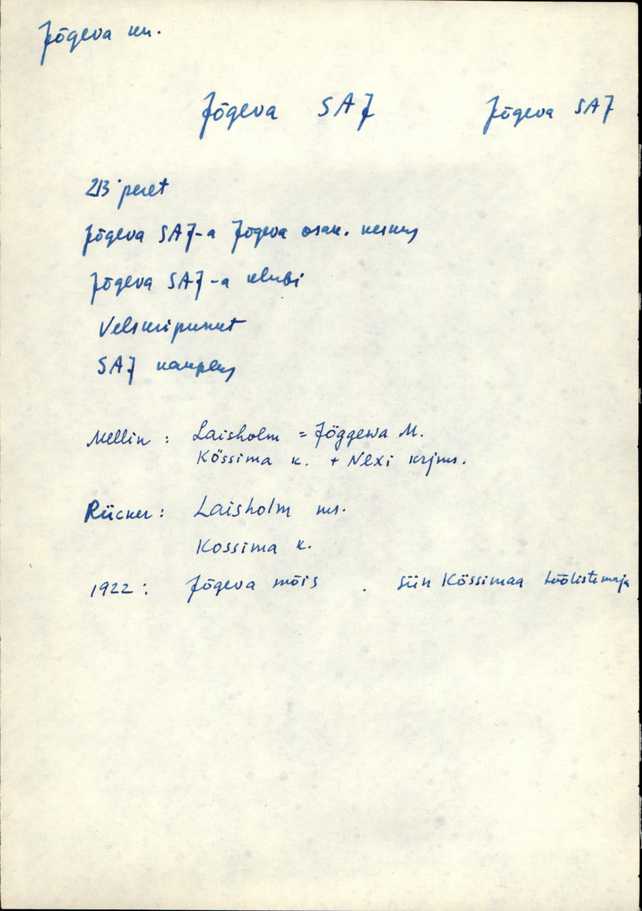 Jõgeva kn.
Jõgeva SAJ Jõgeva SAJ
213 peret
Jõgeva SAJ-a Jõgeva osak. keskus
Jõgeva SAJ-a klubi
Velskripunkt
SAJ kauplus
Mellin : Laisholm = Jöggewa M.
Kössima k. + Nexi krjms.
Rücker : Laisholm ms.
Kossima k.
1922 : Jõgeva mõis . siin Kössimaa töölistemaja